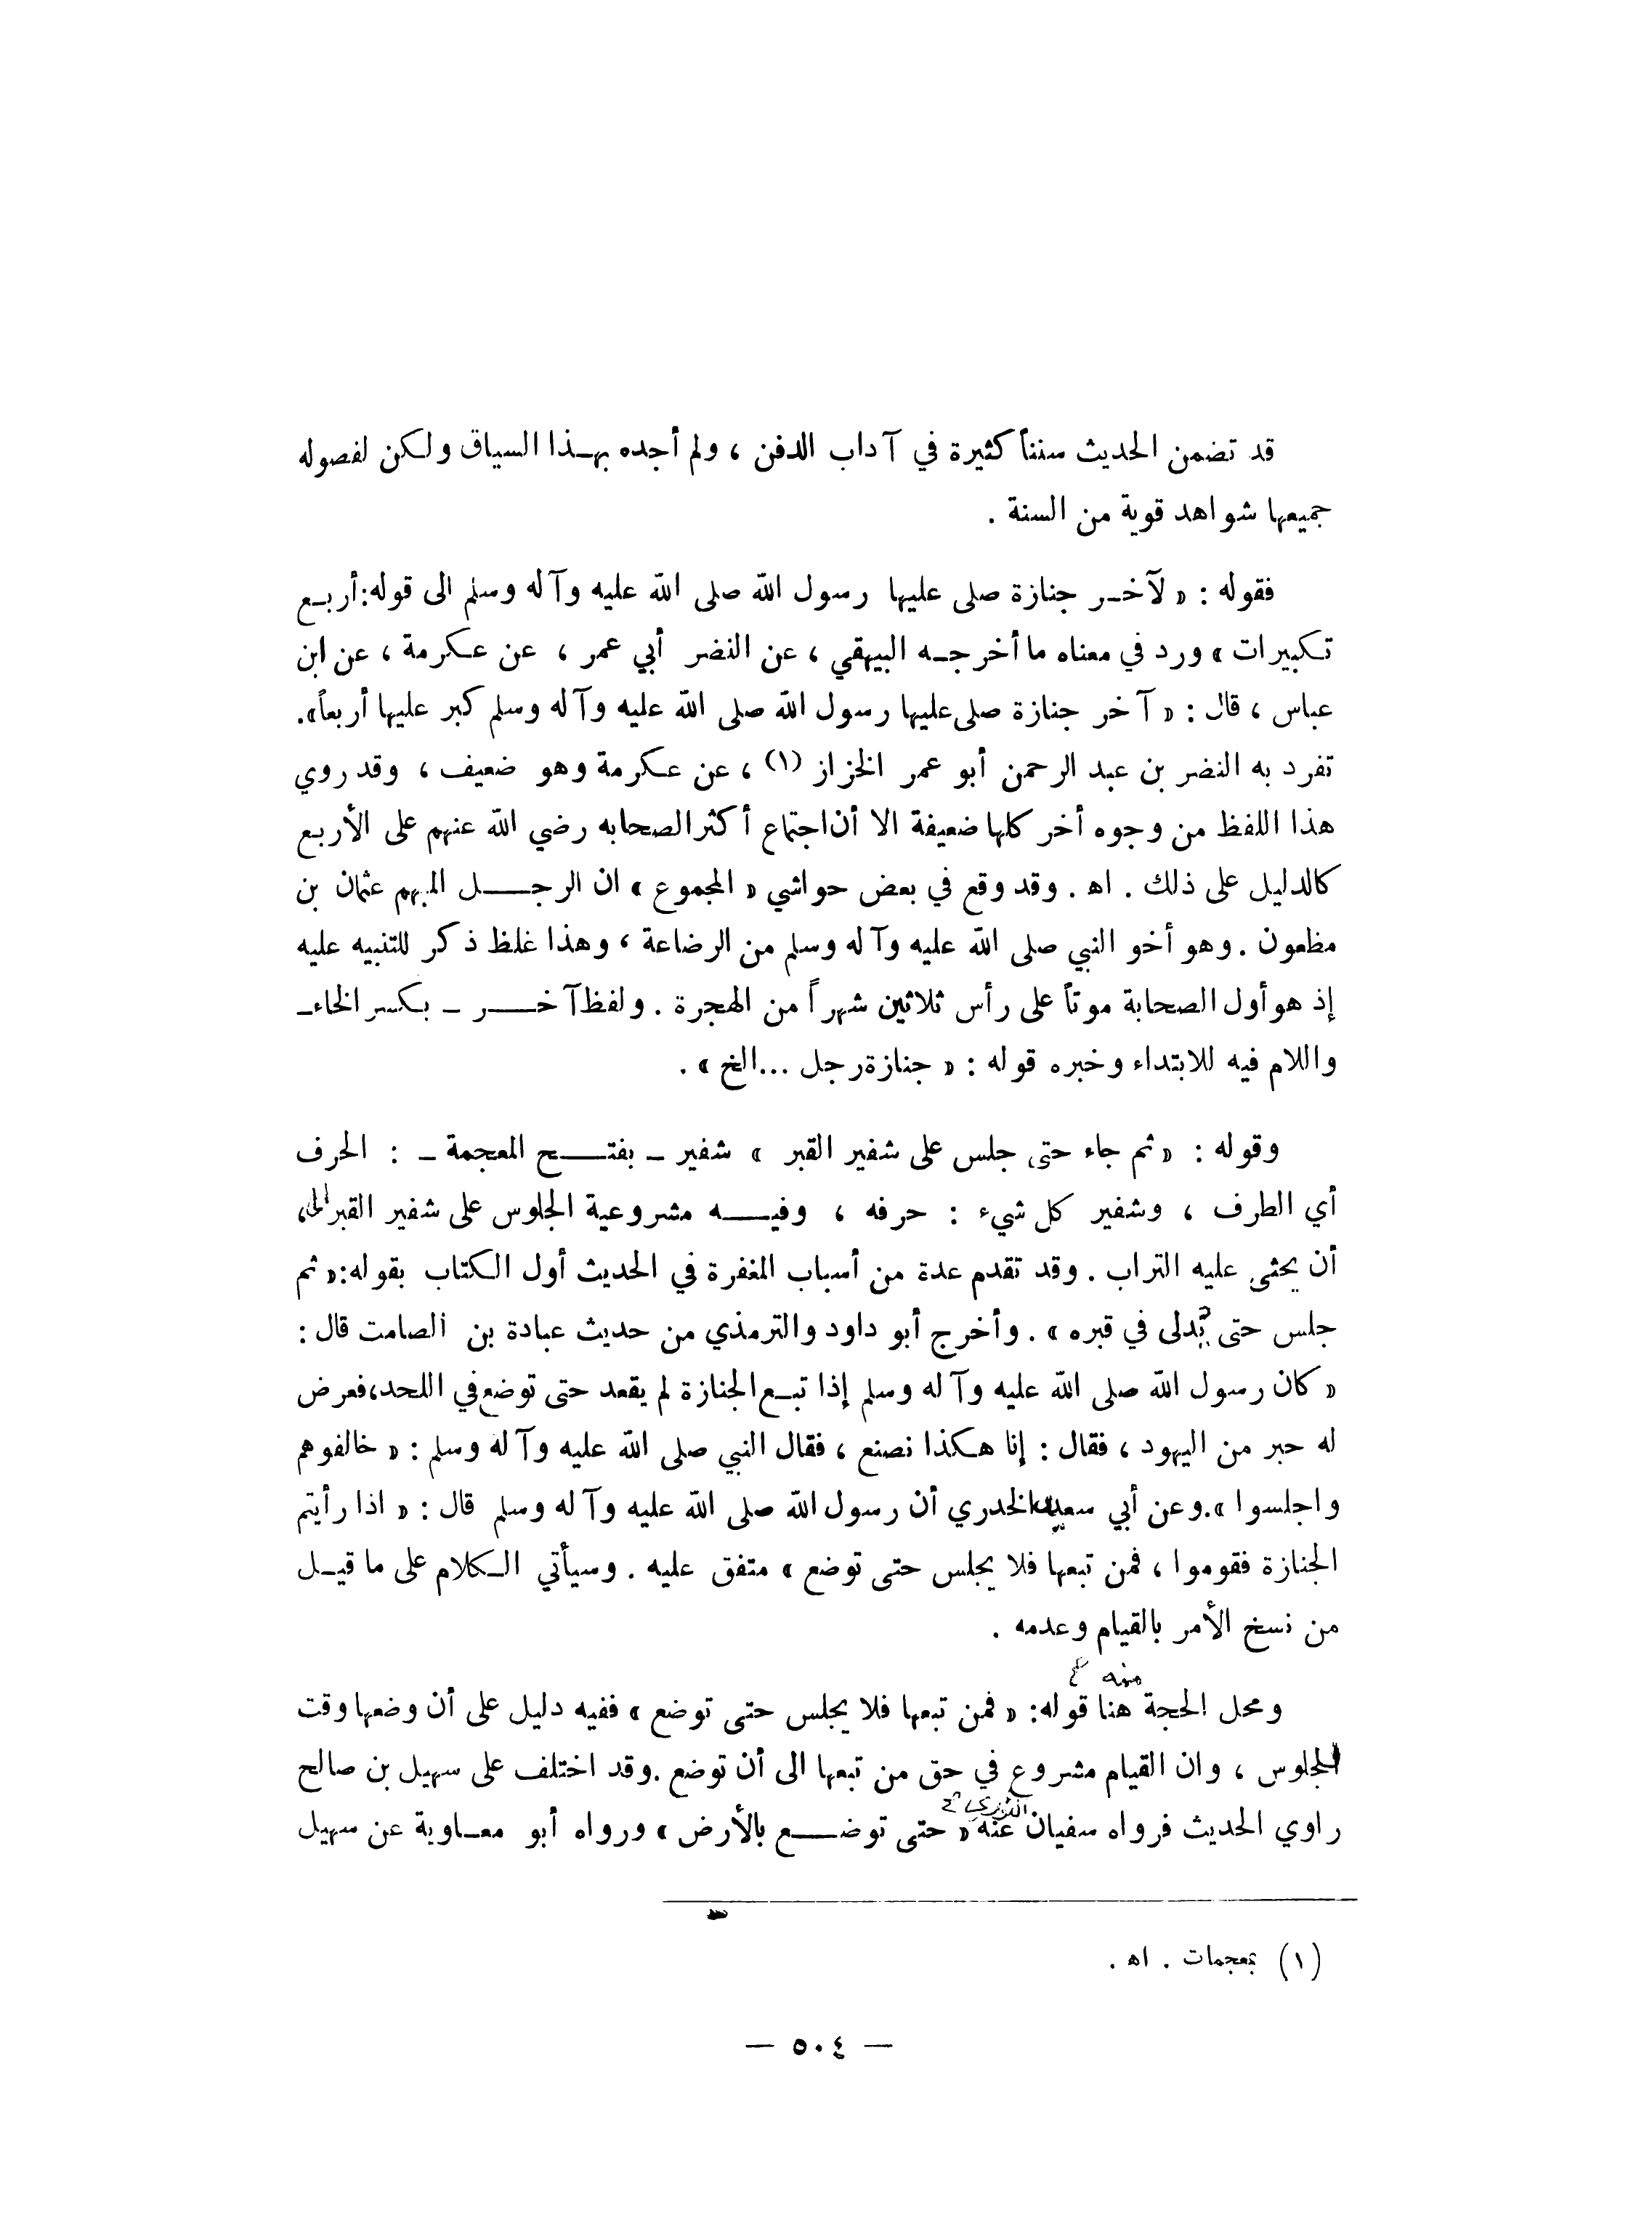 قد تضمن الحديث سنناً كثيرة في آداب الدفن ، ولم أجده بهذا السياق ولكن لفصوله
جميعها شواهد قوية من السنة .
فقوله : « لآخر جنازة صلى عليها رسول الله صلى الله عليه وآله وسلم الى قوله : أربع
تكبيرات » ورد في معناه ما أخرجه البيهقي ، عن النضر أبي عمر ، عن عكرمة ، عن ابن
عباس ، قال : « آخر جنازة صلى عليها رسول الله صلى الله عليه وآله وسلم كبر عليها أربعاً».
تفرد به النضر بن عبد الرحمن أبو عمر الخزاز (١) ، عن عكرمة وهو ضعيف ، وقد روي
هذا اللفظ من وجوه أخر كلها ضعيفة الا أن اجتماع أكثر الصحابه رضي الله عنهم على الأربع
كالدليل على ذلك . اه . وقد وقع في بعض حواشي « المجموع » ان الرجل المبهم عثمان بن
مظعون . وهو أخو النبي صلى الله عليه وآله وسلم من الرضاعة ، وهذا غلظ ذكر للتنبيه عليه
إذ هو أول الصحابة موتاً على رأس ثلاثين شهراً من الهجرة . ولفظ آخر ـ بكسر الخاء ـ
واللام فيه للابتداء وخبره قوله : « جنازة رجل ... الخ » .
وقوله : « ثم جاء حتى جلس على شفير القبر » شفير ـ بفتح المعجمة ـ : الحرف
أي الطرف ، وشفير كل شيء : حرفه ، وفيه مشروعية الجلوس على شفير القبر الى
أن يحثى عليه التراب . وقد تقدم عدة من أسباب المغفرة في الحديث أول الكتاب بقوله : « ثم
جلس حتى يدلى في قبره » . وأخرج أبو داود والترمذي من حديث عبادة بن الصامت قال :
« كان رسول الله صلى الله عليه وآله وسلم إذا تبع الجنازة لم يقعد حتى توضع في اللحد، فعرض
له حبر من اليهود ، فقال : إنا هكذا نصنع ، فقال النبي صلى الله عليه وآله وسلم : « خالفوهم
واجلسوا ». وعن أبي سعيد الخدري أن رسول الله صلى الله عليه وآله وسلم قال : « اذا رأيتم
الجنازة فقوموا ، فمن تبعها فلا يجلس حتى توضع » متفق عليه . وسيأتي الكلام على ما قيل
من نسخ الأمر بالقيام وعدمه .
منه
ومحل الحجة هنا قوله: « فمن تبعها فلا يجلس حتى توضع » ففيه دليل على أن وضعها وقت
الجلوس ، وان القيام مشروع في حق من تبعها الى أن توضع . وقد اختلف على سهيل بن صالح
الثوري
راوي الحديث فرواه سفيان عنه « حتى توضع بالأرض » ورواه أبو معاوية عن سهيل
(١) بمعجمات . اه .
— ٥٠٤ —